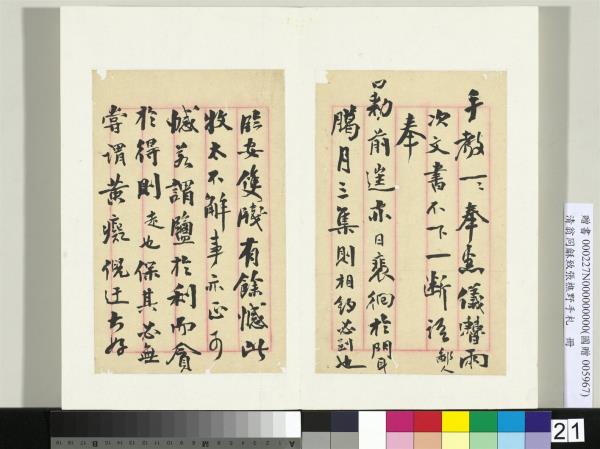 手教一二奉悉儀
次文書不下一斷
鄙人
奉
口勅前
亦日裹徊於門耳
臈月三集則相約必到也
臨安雙牋有餘憾此
牧太不解事亦正可
憾若謂鹽於利而貪
於得則走也保其必無
嘗謂黃癡倪迂
贈書 000227N000000000(國贈 005967)
清翁同龢致張樵野手札 冊
21